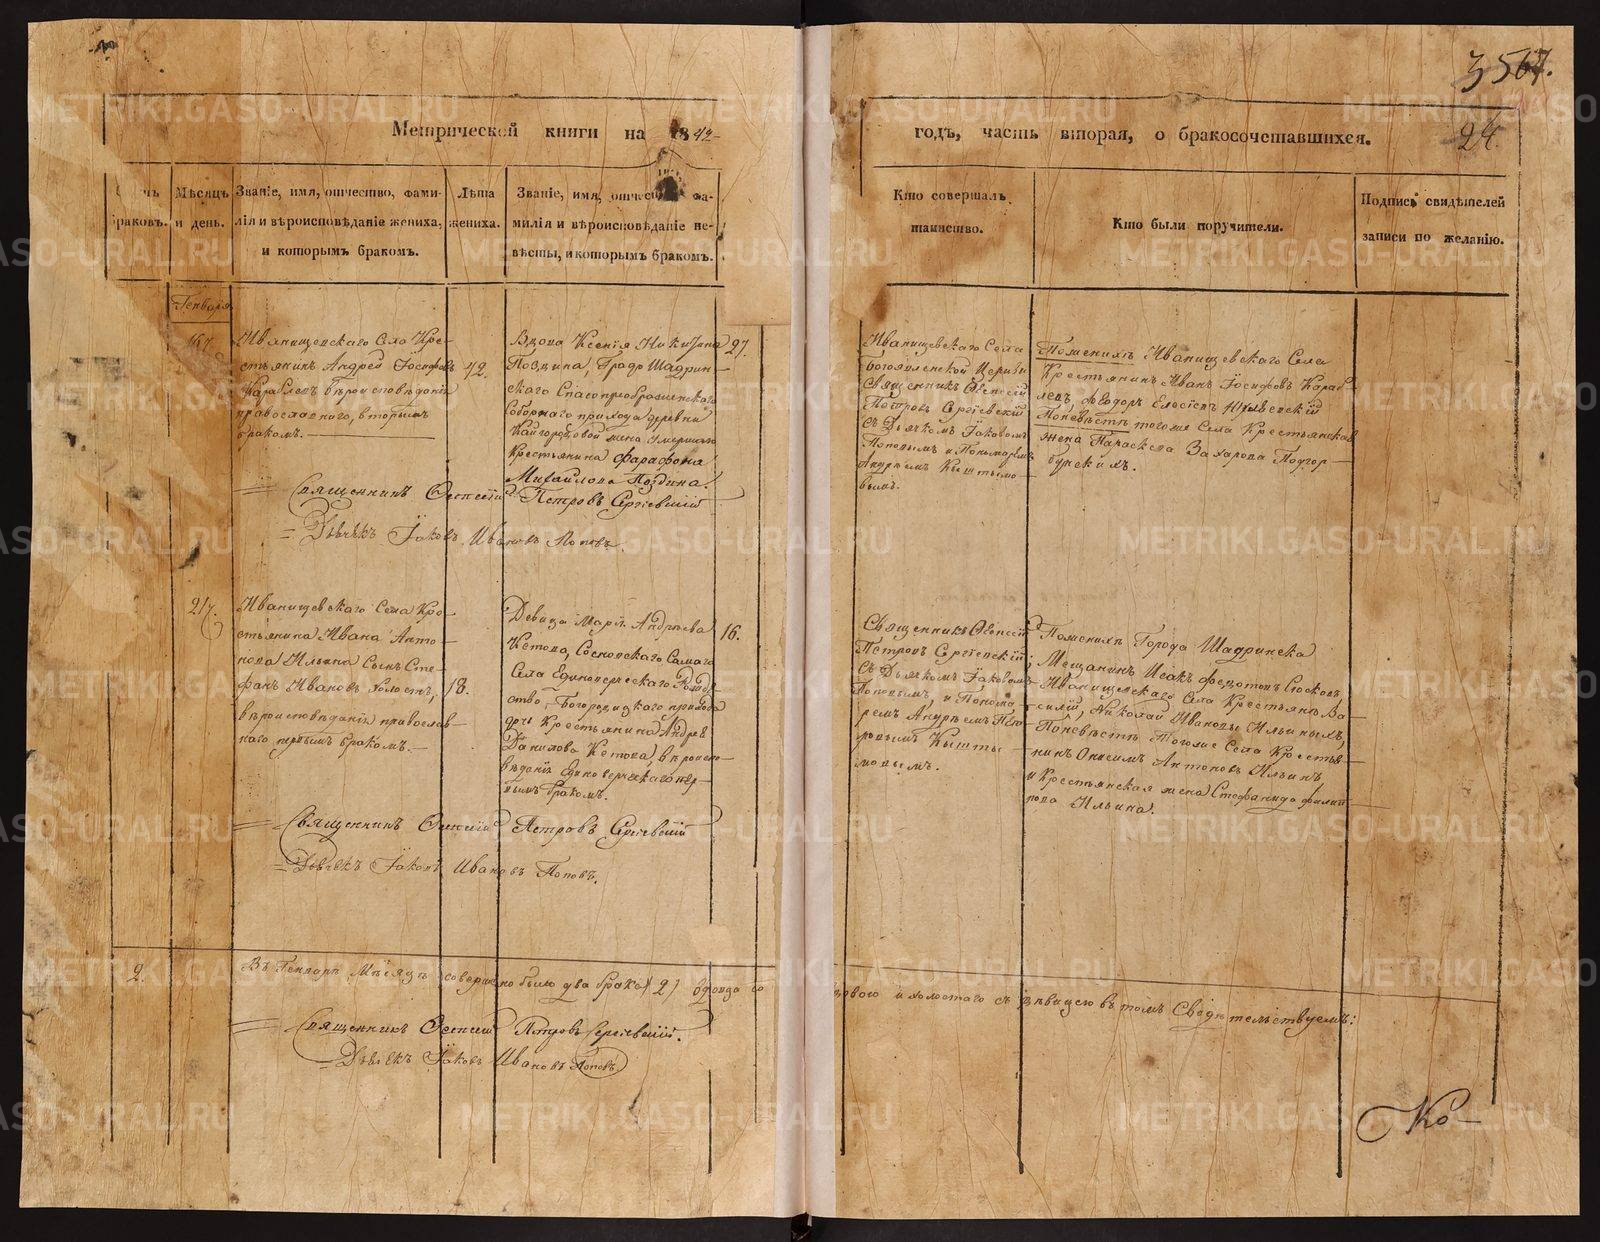 3567.
24.
Метрической книги на 1842
годъ, часть вторая, о бракосочетавшихся.
браковъ.
Мѣсяцъ
и день.
Званіе, имя, отчество, фами-
лія и вѣроисповѣданіе жениха,
и которымъ бракомъ.
Лѣта
жениха.
Званіе, имя, отчество, фа-
милія и вѣроисповѣданіе не-
вѣсты, и которымъ бракомъ.
Кто совершалъ
таинство.
Кто были поручители.
Подпись свидѣтелей
записи по желанію.
Генваря
Иванищевскаго Села Кре-
стьянинъ Андрей Іосифовъ
вѣроисповѣданія
православнаго, вторымъ
бракомъ.
42.
Вдова Ксенія Никитина
Поздина, Градо Шадрин-
скаго Спасопреображенскаго
Соборнаго прихода деревни
жена умершаго
Крестьянина Фарафона
Михайлова Поздина.
27.
Иванищевскаго Села
Богоявленской Церкви
Священникъ
Петровъ Сергіевскій
съ Дьячкомъ Іаковомъ
Поповымъ и Пономаремъ
Андреемъ Кыштымо-
вымъ.
По женихѣ Иванищевскаго Села
Крестьянинъ Иванъ Іосифовъ
Феодоръ
По невѣстѣ тогоже Села Крестьянская
жена Параскева Захарова
Священникъ Петровъ Сергіевскій
Дьячекъ Іаковъ Ивановъ Поповъ.
21.
Иванищевскаго Села Кре-
стьянина Ивана Анто-
нова Ильина Сынъ Сте-
фанъ Ивановъ холостъ,
вѣроисповѣданія православ-
наго первымъ бракомъ.
18.
Девица Марія Андреева
Кетова, Сосновскаго Самаго
Села Единоверческаго Рожде-
ство Богородицкаго прихода
дочь Крестьянина Андрея
Данилова Кетова, вѣроиспо-
вѣданія Единоверческаго пер-
вымъ бракомъ.
16.
Священникъ
Петровъ Сергіевскій
съ Дьячкомъ Іаковомъ
Поповымъ, и Понома-
ремъ Андреемъ Пет-
ровымъ Кышты-
мовымъ.
По женихѣ Города Шадринска
Мещанинъ Исакъ Федотовъ Сюковъ
Иванищевскаго Села Крестьяне Ва-
силій, Николай Ивановы Ильиныхъ,
По невѣстѣ Тогоже Села Крестья-
нинъ Онисимъ Антоновъ Ильинъ
и Крестьянская жена Стефанида Филип-
пова Ильина.
Священникъ Петровъ Сергіевскій
Дьячекъ Іаковъ Ивановъ Поповъ.
2.
Въ Генварѣ Мѣсяцѣ совершено было два брака (2) вдовца со
вдовою и холостаго съ дѣвицею въ томъ Свидѣтельствуемъ:
Священникъ Петровъ Сергіевскій.
Дьячекъ Іаковъ Ивановъ Поповъ
METRIKI.GASO-URAL.RU